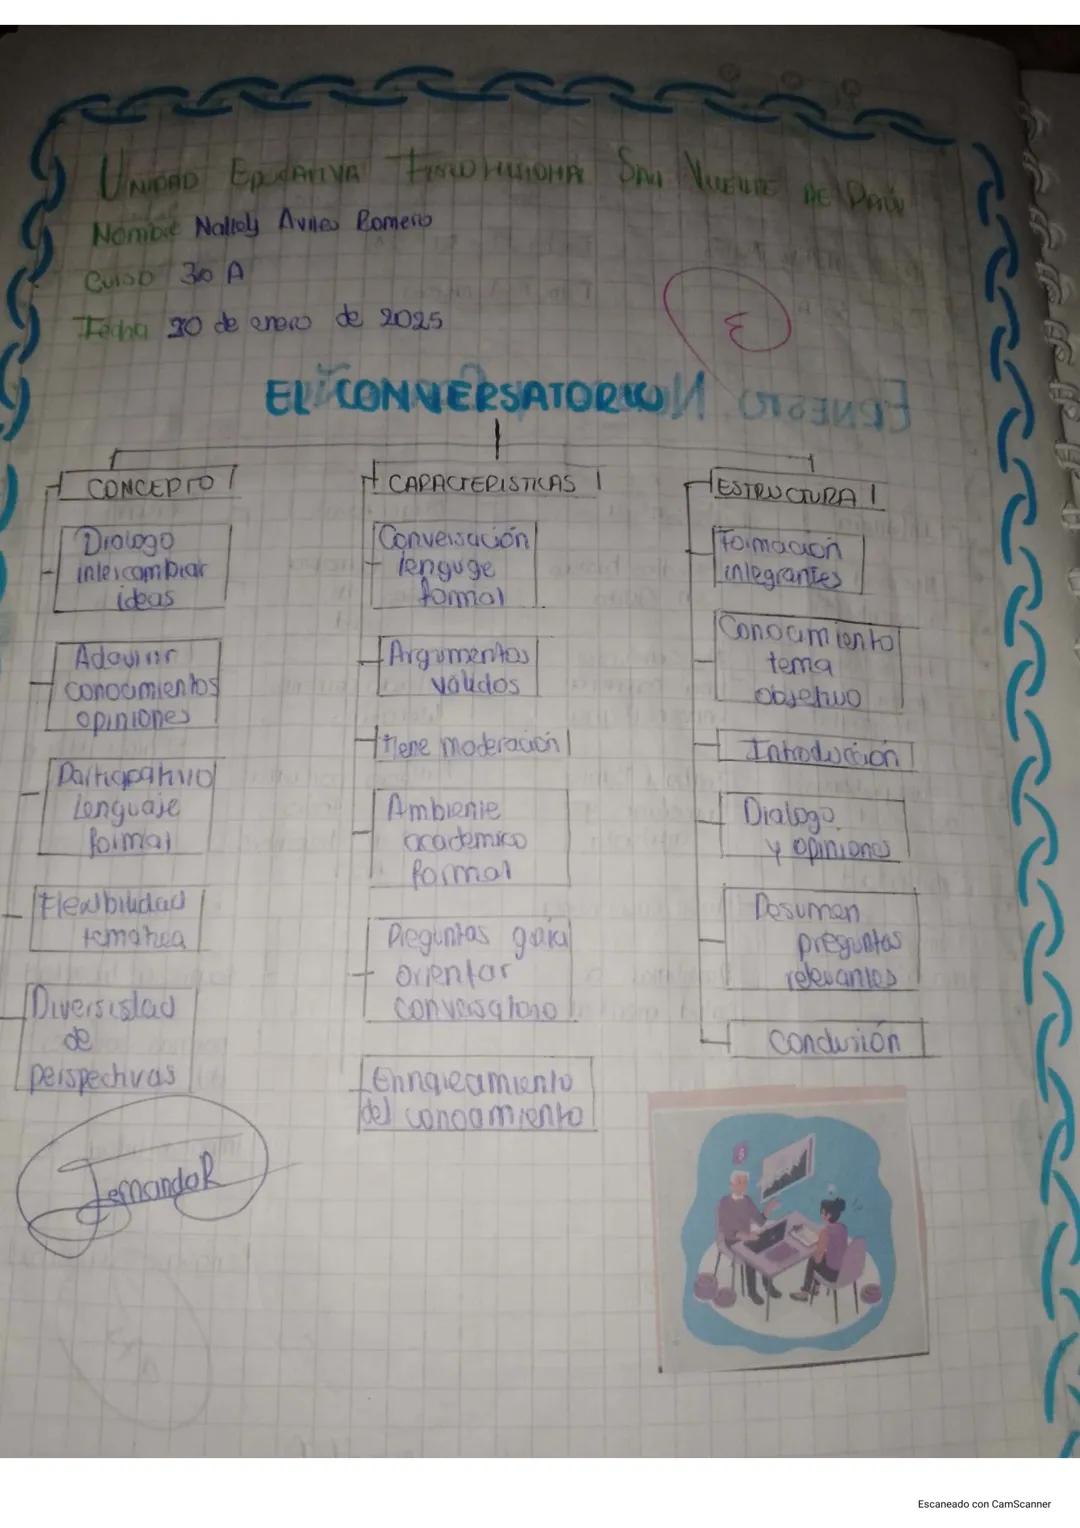 UNIDAD EDUCATIVA FISCOMISIONAL SAN VICENTE DE PAÚL
Nombre Nallely Aviles Romero
Curso 3o A
Fecha 30 de enero de 2025
3
EL CONVERSATORIO
CONCEPTO
Dialogo
intercambiar
ideas
Adquirir
conocimientos
opiniones
Participativo
Lenguaje
formal
Flexibilidad
tematica
Diversidad
de
perspectivas
CARACTERISTICAS
Conversación
lenguge
formal
Argumentos
válidos
tiene moderación
Ambiente
academico
formal
Preguntas guia
orientar
conversatorio
Enriquecimiento
del conocimiento
ESTRUCTURA
Formación
integrantes
Conocimiento
tema
objetivo
Introducción
Dialogo
y opiniones
Resumen
preguntas
relevantes
Conclusión
FernandaR
Escaneado con CamScanner